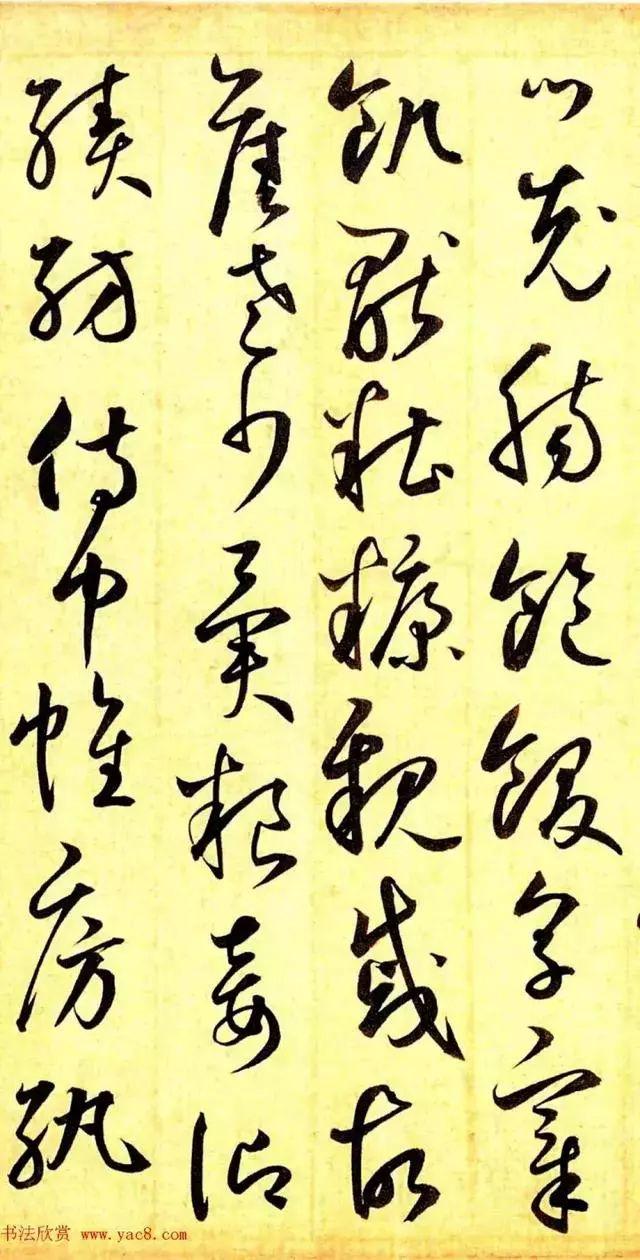 口充腸飽飫亨宰
飢厭糟糠親戚故
舊老少異糧妾御
績紡侍巾帷房紈
书法欣赏 www.yac8.com